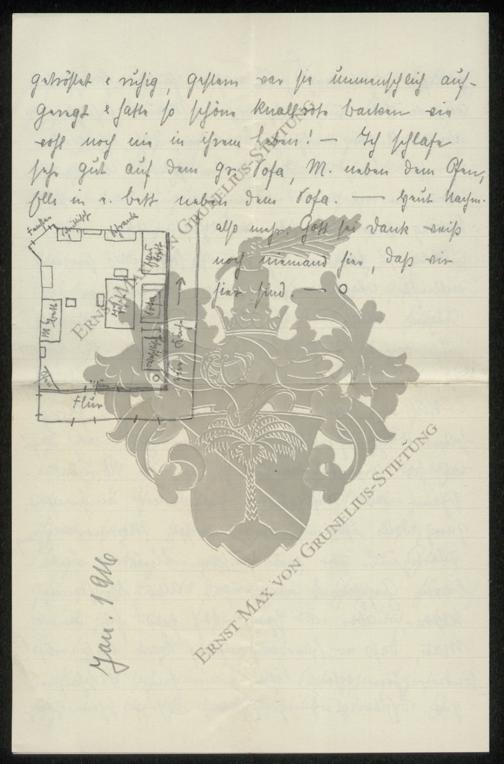 getröstet & ruhig, gestern war sie unmenschlich auf-
geregt & hatte so schöne knallrote backen wie
wohl noch nie in ihrem leben! — Ich schlafe
sehr gut auf dem gr. Sofa, M. neben dem Ofen,
in e. bett neben dem Sofa. — heut Nachm.
also mehr. Gott sei dank weiß
noch niemand hier, daß wir
hier sind. —
Fenster
Schrank
bett
Sofa
M's bett
Flur
Jan. 1916
ERNST MAX VON GRUNELIUS-STIFTUNG
ERNST MAX VON GRUNELIUS-STIFTUNG